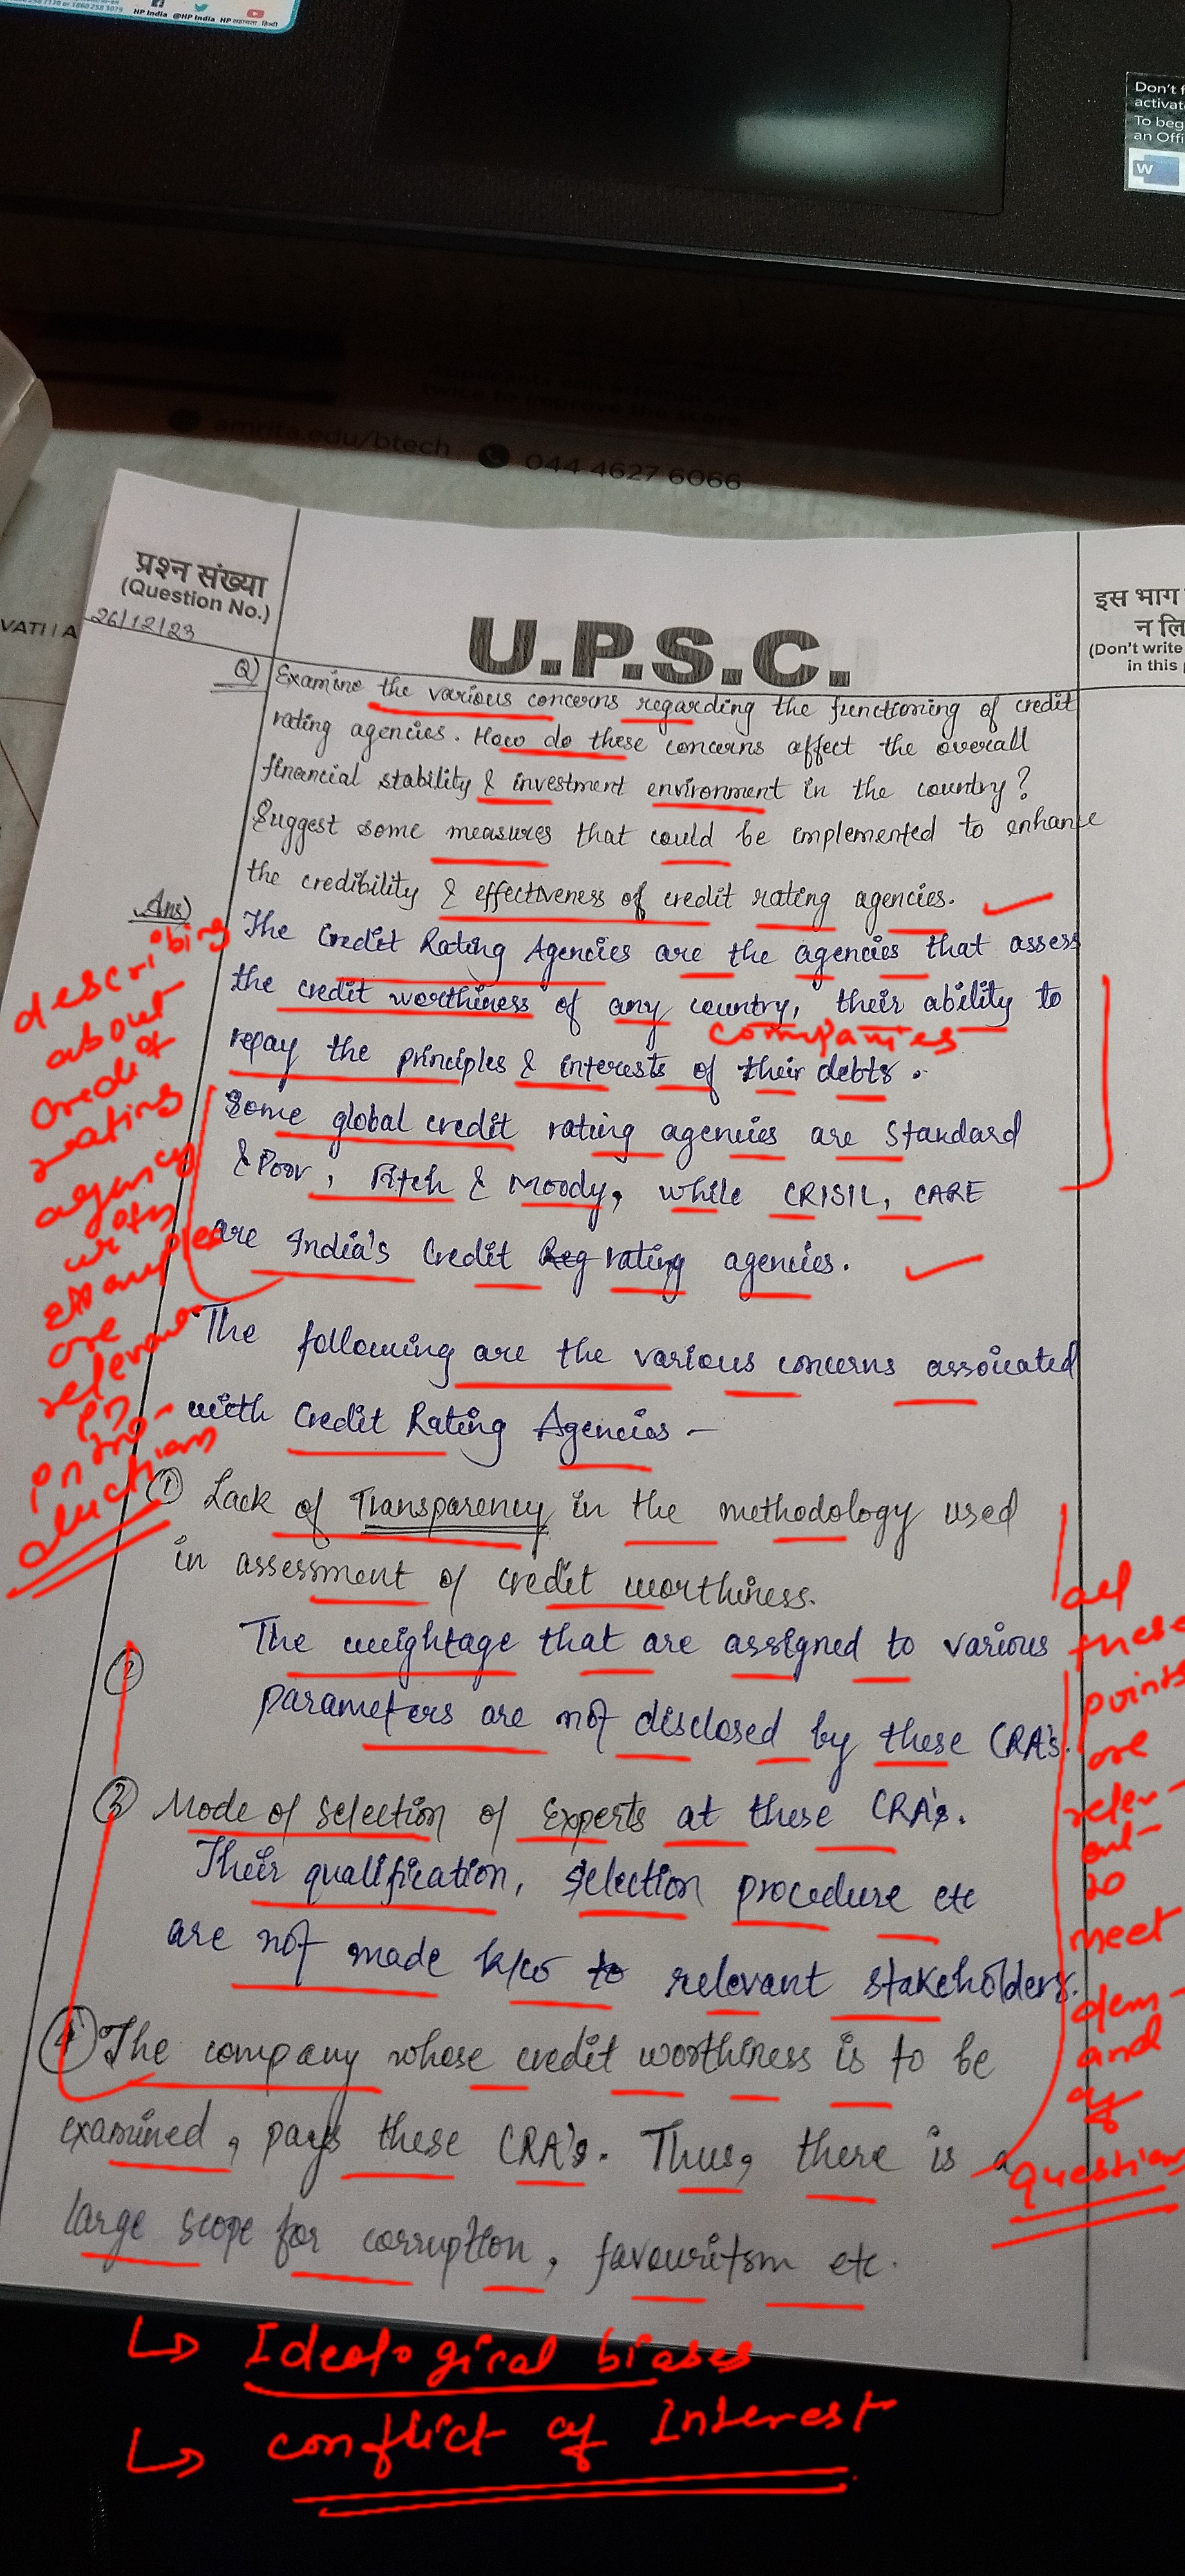 HP India @HP India HP
Don't
activat
To beg
an Offi
W
amrita.edu/btech 044 4627 6066
प्रश्न संख्या
(Question No.)
26/12/23
VATI I A
U.P.S.C.
इस भाग
न लि
(Don't write
in this
Q) Examine the various concerns regarding the functioning of credit
rating agencies. How do these concerns affect the overall
financial stability & investment environment in the country?
Suggest some measures that could be implemented to enhance
the credibility & effectiveness of credit rating agencies.
Ans)
The Credit Rating Agencies are the agencies that assess
the credit worthiness of any country, their ability to
companies
repay the principles & interests of their debts.
Some global credit rating agencies are Standard
& Poor, Fitch & Moody, while CRISIL, CARE
are India's Credit Reg rating agencies.
describing
about
credit
rating
agency
with
examples
are
relevant
in
intro-
duction
The following are the various concerns associated
with Credit Rating Agencies –
① Lack of Transparency in the methodology used
in assessment of credit worthiness.
② The weightage that are assigned to various
parameters are not disclosed by these CRA's.
③ Mode of selection of Experts at these CRA's.
Their qualification, selection procedure etc
are not made k/w to relevant stakeholders.
④ The company whose credit worthiness is to be
examined, pays these CRA's. Thus, there is a
large scope for corruption, favouritsm etc.
all
these
points
are
relev-
ant
to
meet
dem-
and
of
question
↳ Ideological biases
↳ conflict of Interest